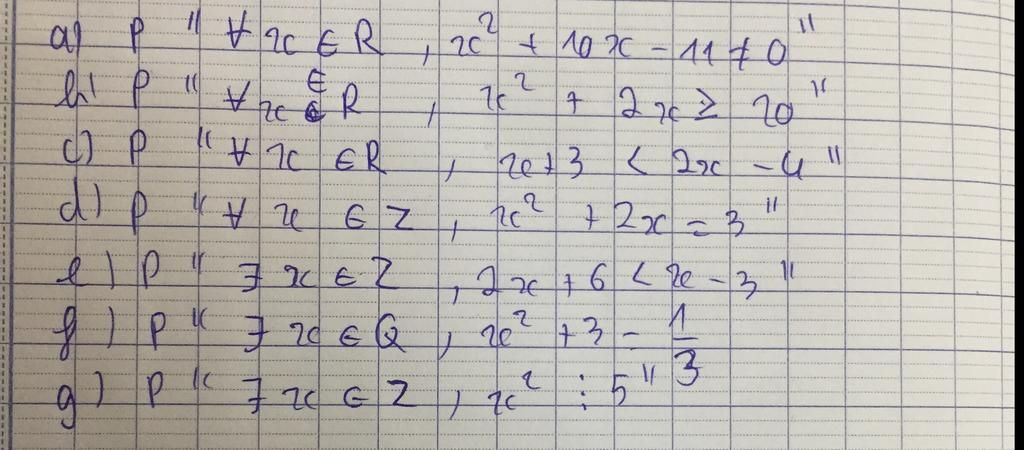 a) P " ∀ x ∈ R , x² + 10x - 11 ≠ 0 "
b) P " ∀ x ∈ R , x² + 2x ≥ 20 "
c) P " ∀ x ∈ R , x + 3 < 2x - 4 "
d) P " ∀ x ∈ Z , x² + 2x = 3 "
e) P " ∃ x ∈ Z , 2x + 6 < x - 3 "
f) P " ∃ x ∈ Q , x² + 3 = 1/3
g) P " ∃ x ∈ Z , x² ⋮ 5 "